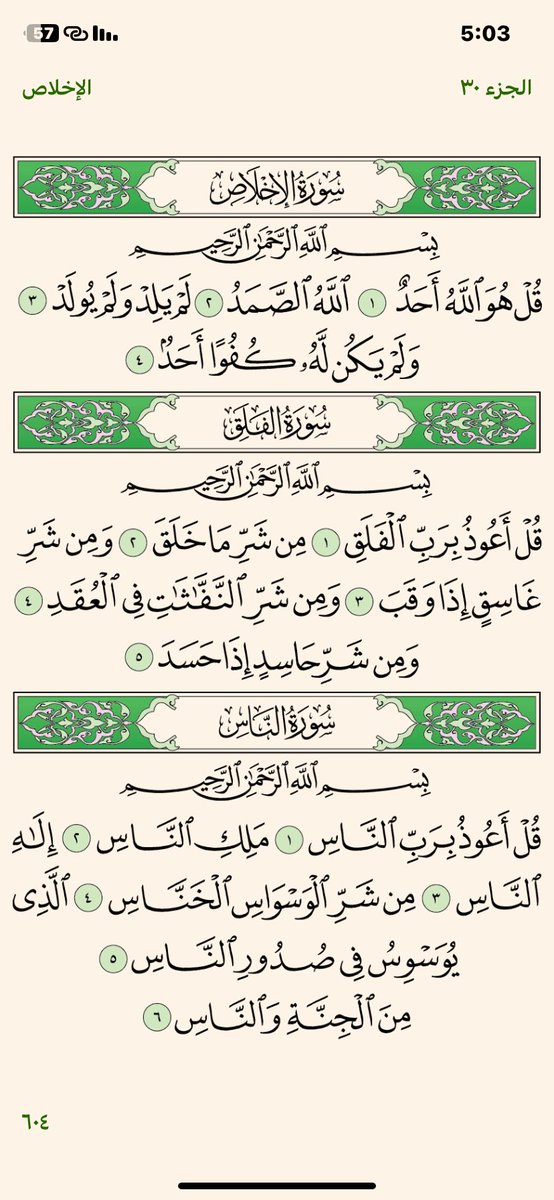 57
5:03
الجزء ٣٠
الإخلاص
سُورَةُ الإِخْلَاصِ
بِسْمِ ٱللَّهِ ٱلرَّحْمَٰنِ ٱلرَّحِيمِ
قُلْ هُوَ ٱللَّهُ أَحَدٌ ١ ٱللَّهُ ٱلصَّمَدُ ٢ لَمْ يَلِدْ وَلَمْ يُولَدْ ٣
وَلَمْ يَكُن لَّهُۥ كُفُوًا أَحَدٌۢ ٤
سُورَةُ الفَلَقِ
بِسْمِ ٱللَّهِ ٱلرَّحْمَٰنِ ٱلرَّحِيمِ
قُلْ أَعُوذُ بِرَبِّ ٱلْفَلَقِ ١ مِن شَرِّ مَا خَلَقَ ٢ وَمِن شَرِّ
غَاسِقٍ إِذَا وَقَبَ ٣ وَمِن شَرِّ ٱلنَّفَّٰثَٰتِ فِى ٱلْعُقَدِ ٤
وَمِن شَرِّ حَاسِدٍ إِذَا حَسَدَ ٥
سُورَةُ النَّاسِ
بِسْمِ ٱللَّهِ ٱلرَّحْمَٰنِ ٱلرَّحِيمِ
قُلْ أَعُوذُ بِرَبِّ ٱلنَّاسِ ١ مَلِكِ ٱلنَّاسِ ٢ إِلَٰهِ
ٱلنَّاسِ ٣ مِن شَرِّ ٱلْوَسْوَاسِ ٱلْخَنَّاسِ ٤ ٱلَّذِى
يُوَسْوِسُ فِى صُدُورِ ٱلنَّاسِ ٥
مِنَ ٱلْجِنَّةِ وَٱلنَّاسِ ٦
٦٠٤